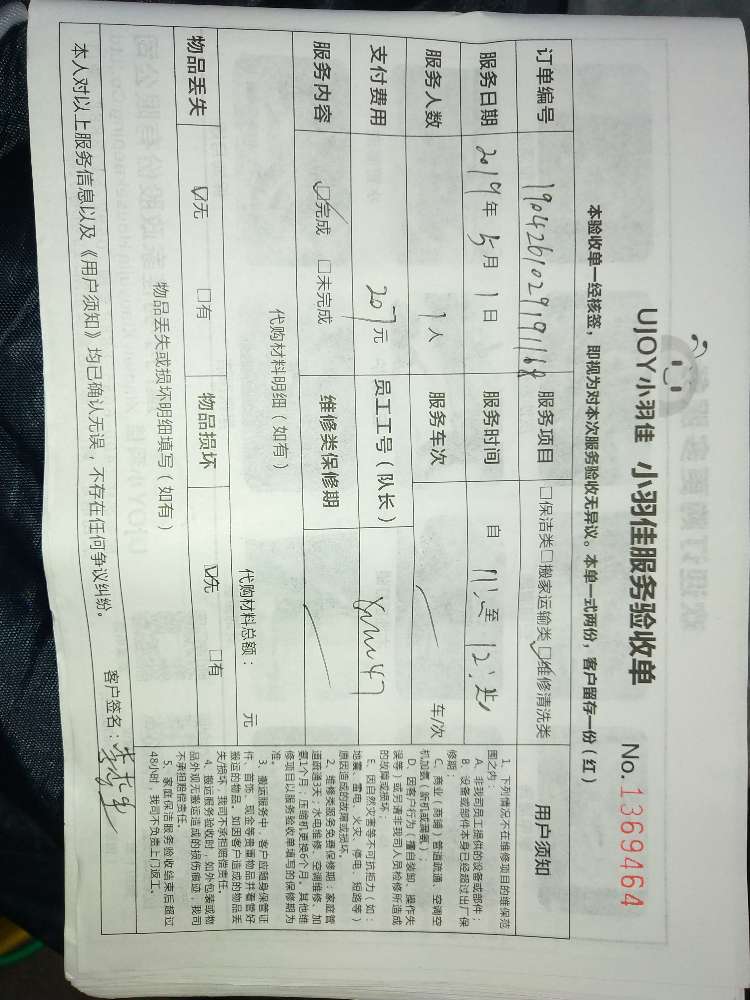 UJOY小羽佳 小羽佳服务验收单 No. 1369464
本验收单一经核签，即视为对本次服务验收无异议。本单一式两份，客户留存一份（红）
订单编号 1904261029191168 服务项目 □保洁类□搬家运输类☑维修清洗类
服务日期 2019年5月1日 服务时间 自 至
服务人数 1人 服务车次 车/次
支付费用 207元 员工工号（队长）
服务内容 ☑完成 □未完成 维修类保修期
代购材料明细（如有） 代购材料总额： 元
物品丢失 ☑无 □有 物品损坏 ☑无 □有
物品丢失或损坏明细填写（如有）
本人对以上服务信息以及《用户须知》均已确认无误，不存在任何争议纠纷。 客户签名：
用户须知
1、下列情况不在维修项目的维保范
围之内：
A、非我司员工提供的设备或部件；
B、设备或部件本身已经超过出厂保
修期；
C、商业（商铺）管道疏通、空调空
机加氨（新机或漏氨）；
D、因客户行为（擅自装卸、操作失
误等）或另请非我司人员检修所造成
的故障或损坏；
E、因自然灾害等不可抗拒力（如：
地震、雷电、火灾、停电、短路等）
原因造成的故障或损坏。
2、维修类服务免费保修期：家庭管
道疏通7天；水电维修、空调维修、加
氨1个月；压缩机更换6个月。其他维
修项目以服务验收单填写的保修期为
准。
3、搬运服务中，客户应随身保管证
件、首饰、现金等贵重物品并看管好
搬运的物品。如因客户造成的物品丢
失/损坏，我司不承担赔偿责任。
4、搬运服务验收时，如外包装或物
品外观无搬运造成的损伤痕迹，我司
不承担赔偿责任。
5、家庭保洁服务验收结束后超过
48小时，我司不负责上门返工。